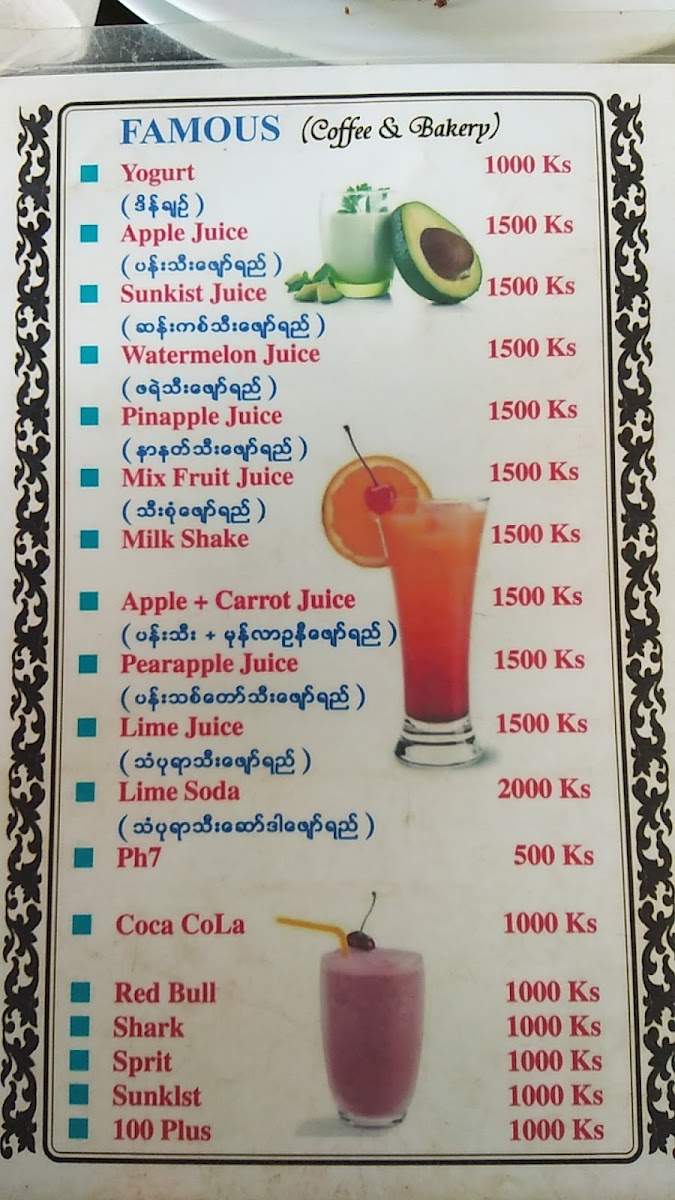 FAMOUS (Coffee & Bakery)
Yogurt 1000 Ks
(ဒိန်ချဉ်)
Apple Juice 1500 Ks
(ပန်းသီးဖျော်ရည်)
Sunkist Juice 1500 Ks
(ဆန်းကစ်သီးဖျော်ရည်)
Watermelon Juice 1500 Ks
(ဖရဲသီးဖျော်ရည်)
Pinapple Juice 1500 Ks
(နာနတ်သီးဖျော်ရည်)
Mix Fruit Juice 1500 Ks
(သီးစုံဖျော်ရည်)
Milk Shake 1500 Ks
Apple + Carrot Juice 1500 Ks
(ပန်းသီး + မုန်လာဥနီဖျော်ရည်)
Pearapple Juice 1500 Ks
(ပန်းသစ်တော်သီးဖျော်ရည်)
Lime Juice 1500 Ks
(သံပုရာသီးဖျော်ရည်)
Lime Soda 2000 Ks
(သံပုရာသီးဆော်ဒါဖျော်ရည်)
Ph7 500 Ks
Coca CoLa 1000 Ks
Red Bull 1000 Ks
Shark 1000 Ks
Sprit 1000 Ks
Sunklst 1000 Ks
100 Plus 1000 Ks